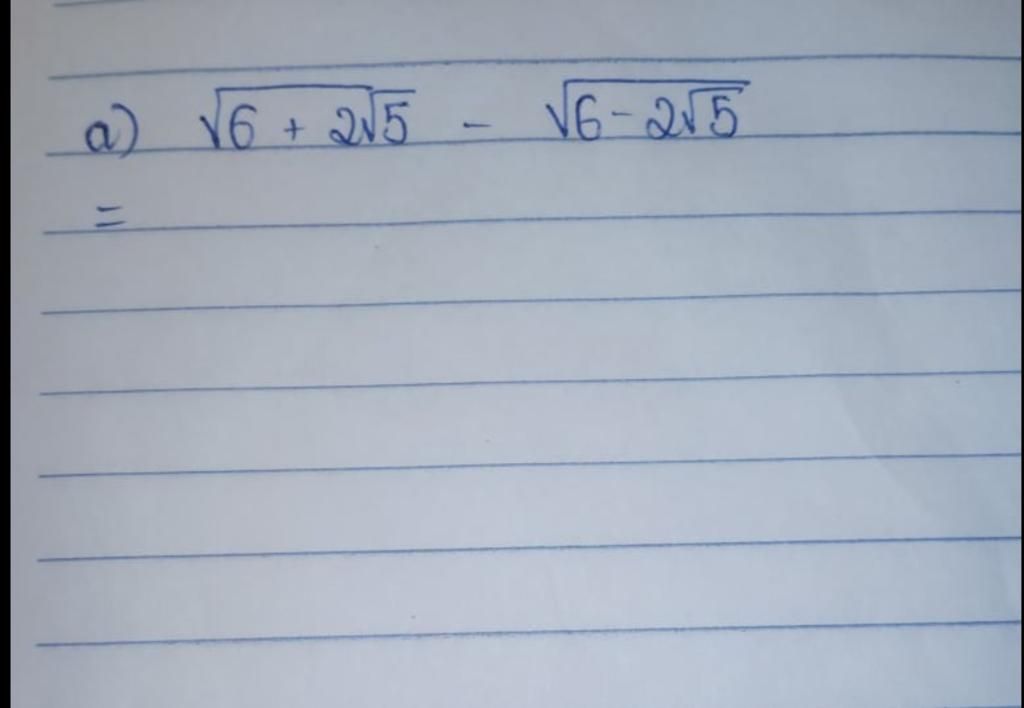 a) √(6 + 2√5) - √(6 - 2√5)
=